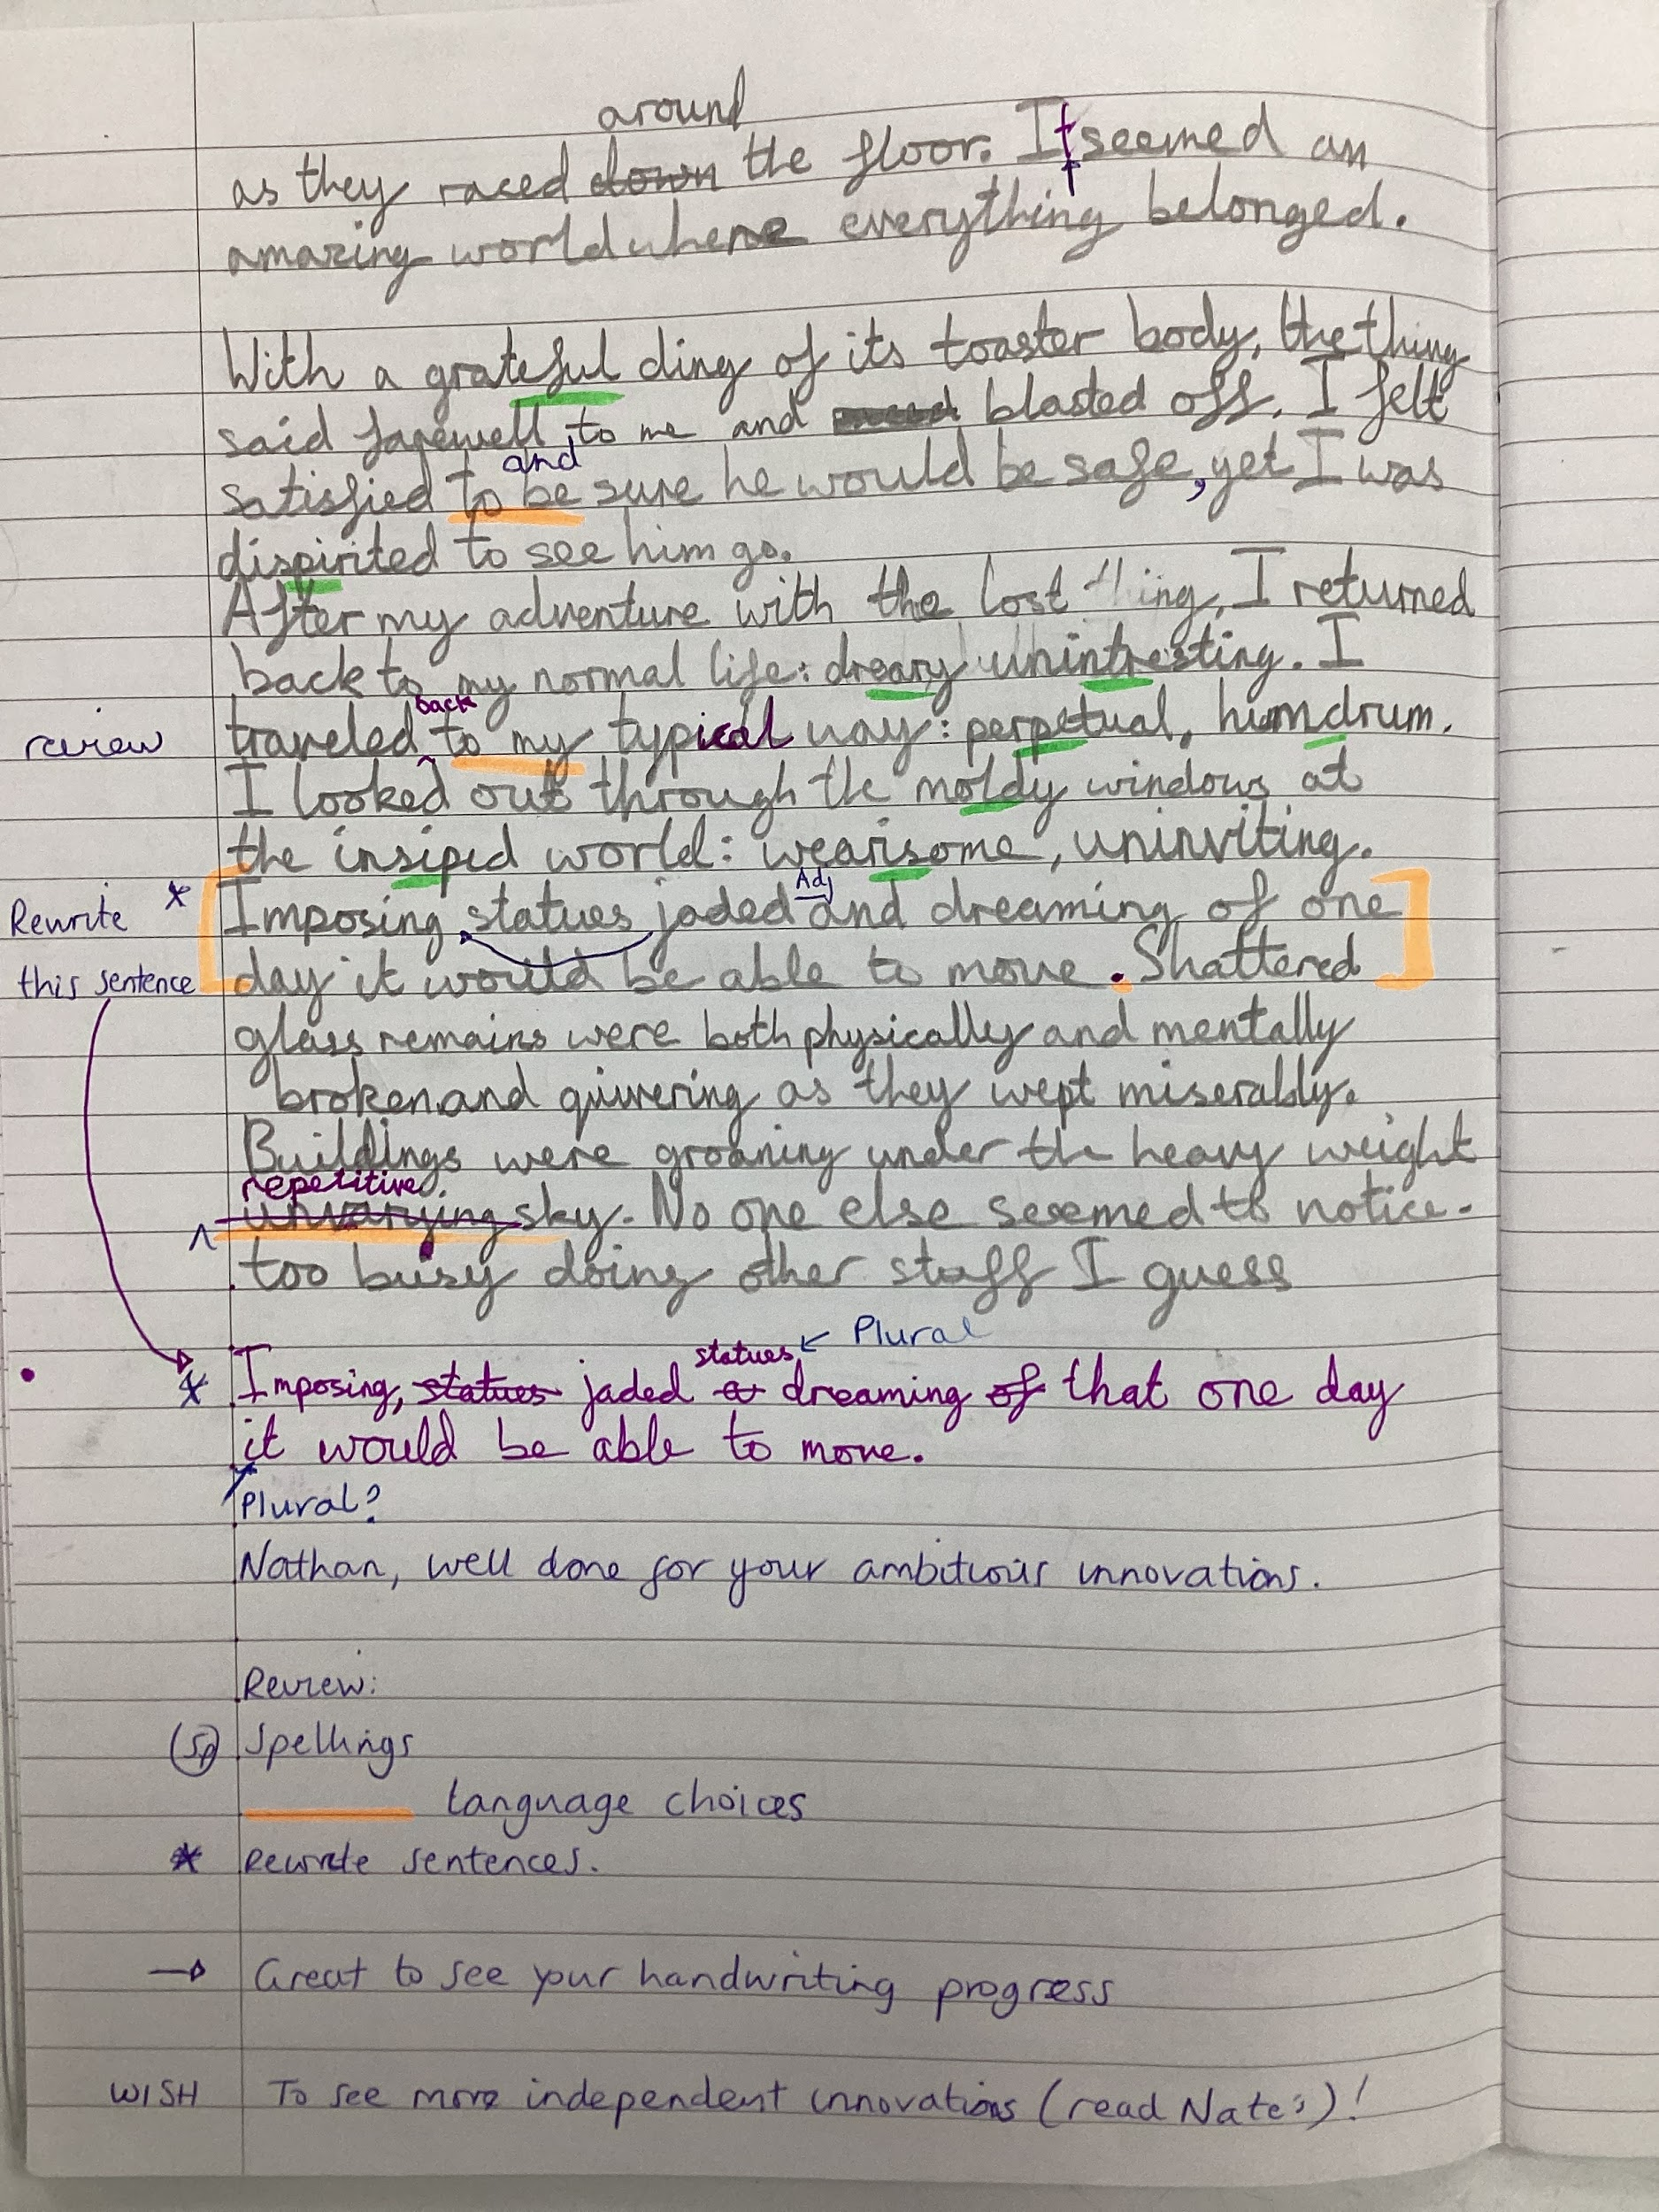 around
as they raced down the floor. It seemed an
amazing world where everything belonged.
With a grateful ding of its toaster body, the thing
said farewell to me and blasted off. I felt
and
satisfied to be sure he would be safe, yet I was
dispirited to see him go.
After my adventure with the lost thing, I returned
back to my normal life: dreary unintresting. I
back
review traveled to my typical way: perpetual, humdrum.
I looked out through the moldy windows at
the insiped world: wearisome, uninviting.
Adj
Rewrite * Imposing statues jaded and dreaming of one
this sentence day it would be able to move. Shattered
glass remains were both physically and mentally
broken and quivering as they wept miserably.
Buildings were groaning under the heavy weight
repetitive
unvarying sky. No one else seemed to notice.
too busy doing other stuff I guess
statues ← Plural
* Imposing, statues jaded dreaming of that one day
it would be able to move.
Plural?
Nathan, well done for your ambitious innovations.
Review:
(Sp) Spellings
language choices
* Rewrite sentences.
→ Great to see your handwriting progress
WISH To see more independent innovations (read Nate's)!